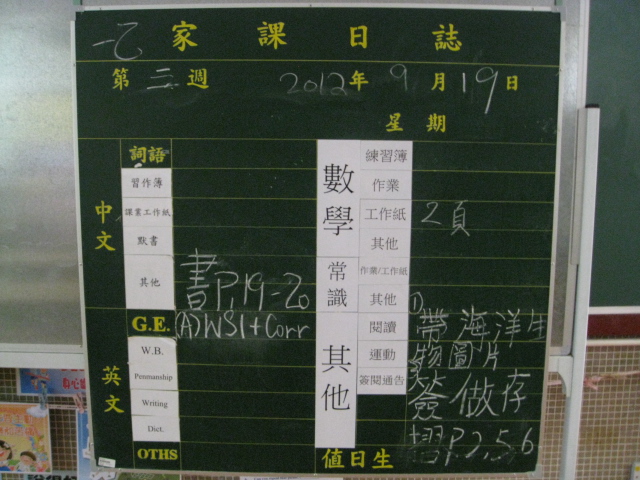 一乙 家課日誌
第三週 2012年9月19日
星期
中文
詞語
習作簿
課業工作紙
默書
其他 書P.19-20
英文
G.E. (A)WS1+Corr
W.B.
Penmanship
Writing
Dict.
OTHS
數學
練習簿
作業
工作紙 2頁
其他
常識
作業/工作紙
其他 ①
其他
閱讀 帶海洋生
運動 物圖片
簽閱通告 簽 做存
摺P.2,5,6
值日生